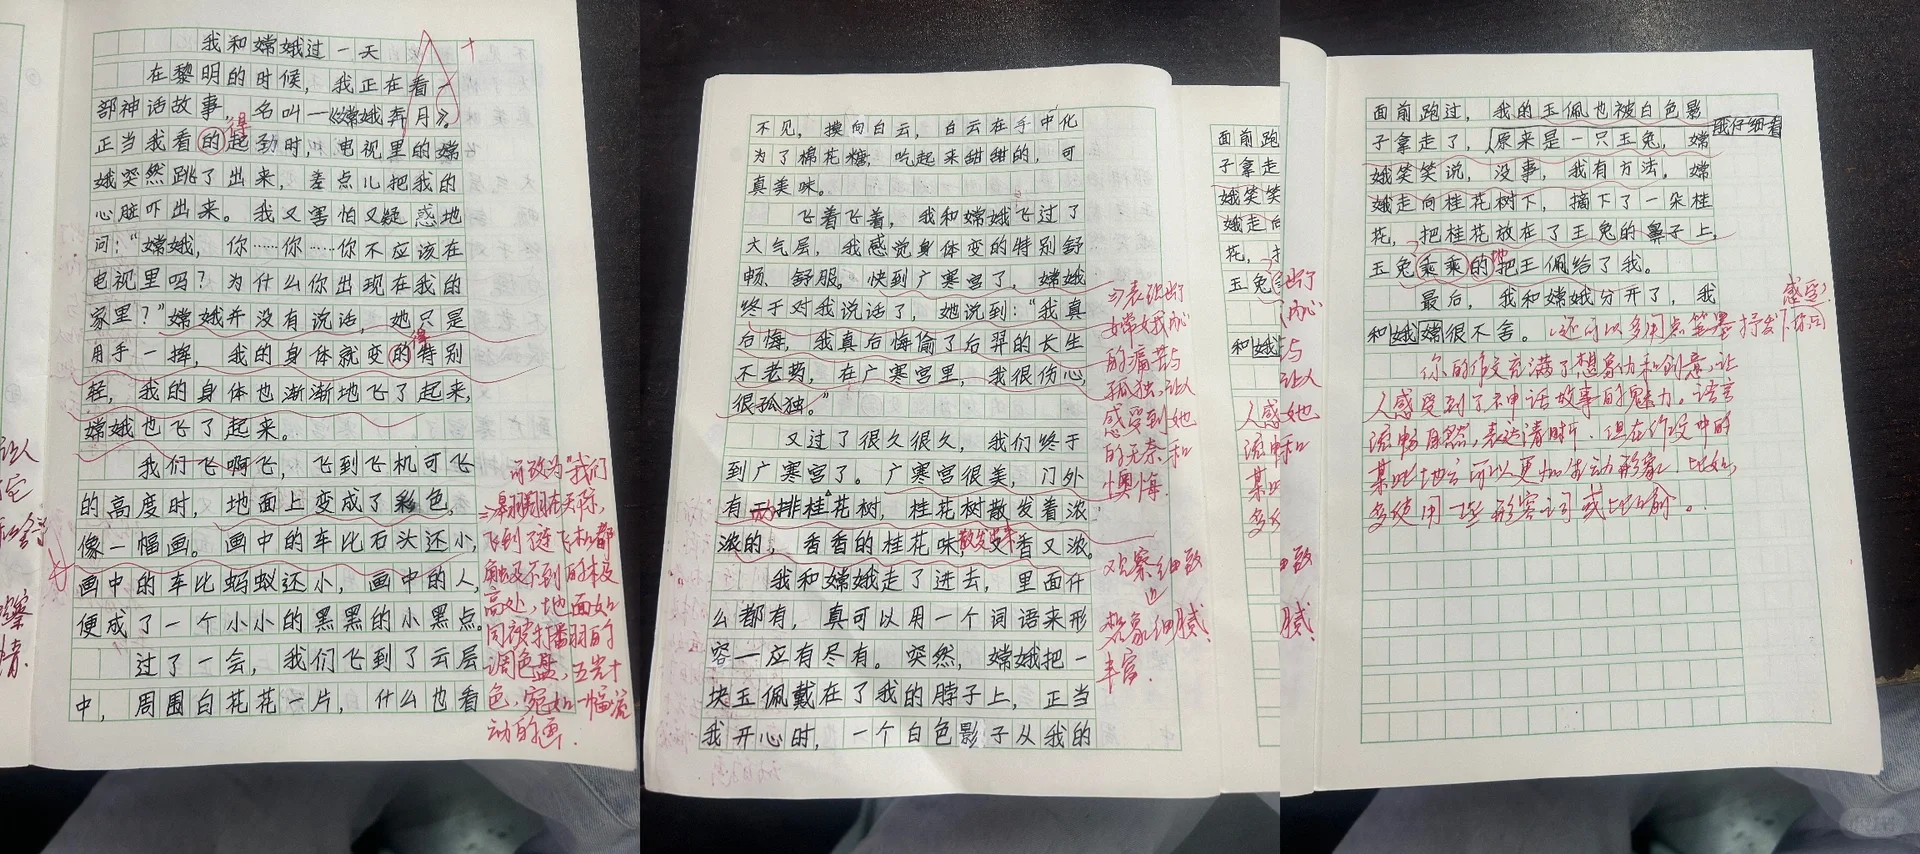 我和嫦娥过一天
在黎明的时候，我正在看一
部神话故事，名叫一《嫦娥奔月》。
正当我看的起劲时，电视里的嫦
得
娥突然跳了出来，差点儿把我的
心脏吓出来。我又害怕又疑惑地
问：“嫦娥，你……你……你不应该在
电视里吗？为什么你出现在我的
家里？”嫦娥并没有说话，她只是
用手一挥，我的身体就变的特别
得
轻，我的身体也渐渐地飞了起来，
嫦娥也飞了起来。
我们飞啊飞，飞到飞机可飞
的高度时，地面上变成了彩色，
像一幅画。画中的车比石头还小，
画中的车比蚂蚁还小，画中的人，
便成了一个小小的黑黑的小黑点。
过了一会，我们飞到了云层
中，周围白花花一片，什么也看
可改为“我们
翱翔在天际，
飞到了连飞机都
触及不到的极
高处，地面如
同被打翻的
调色盘，五光十
色，宛如一幅流
动的画.
不见，摸向白云，白云在手中化
为了棉花糖，吃起来甜甜的，可
真美味。
飞着飞着，我和嫦娥飞过了
大气层，我感觉身体变的特别舒
畅 舒服。快到广寒宫了，嫦娥
终于对我说话了，她说到：“我真
后悔，我真后悔偷了后羿的长生
不老药，在广寒宫里，我很伤心，
很孤独。”
又过了很久很久，我们终于
到广寒宫了。广寒宫很美，门外
有两排桂花树，桂花树散发着浓
浓的，香香的桂花味，又香又浓。
我和嫦娥走了进去，里面什
么都有，真可以用一个词语来形
容一应有尽有。突然，嫦娥把一
块玉佩戴在了我的脖子上，正当
我开心时，一个白色影子从我的
→表现出了
嫦娥内心
的痛苦与
孤独，让人
感受到她
的无奈和
懊悔.
观察细致
想象细腻
丰富.
面前跑
子拿走
娥笑笑
娥走向
花，
玉兔
和娥
面前跑过，我的玉佩也被白色影
子拿走了，原来是一只玉兔，嫦
我仔细看
娥笑笑说，没事，我有方法，嫦
娥走向桂花树下，摘下了一朵桂
花，把桂花放在了玉兔的鼻子上，
玉兔乖乖的把玉佩给了我。
地
最后，我和嫦娥分开了，我
和娥嫦很不舍。
还可以多用点笔墨抒发下你的
感受？
你的作文充满了想象力和创意，让
人感受到了神话故事的魅力。语言
流畅自然，表达清晰. 但在作文中的
某些地方可以更加生动形象，比如，
多使用一些形容词或比喻。